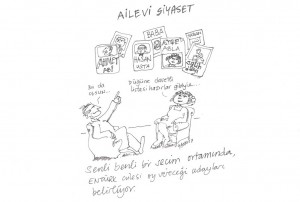 AILEVİ SİYASET
BABA
AHMET
ABİ
HASAN
USTA
ABLA
BU DA
OLSUN...
DÜĞÜNE DAVETLİ
LİSTESİ HAZIRLAR GİBİYİZ...
Senli benli bir seçim ortamında,
ENTÜRK ailesi oy vereceği adayları
belirliyor.